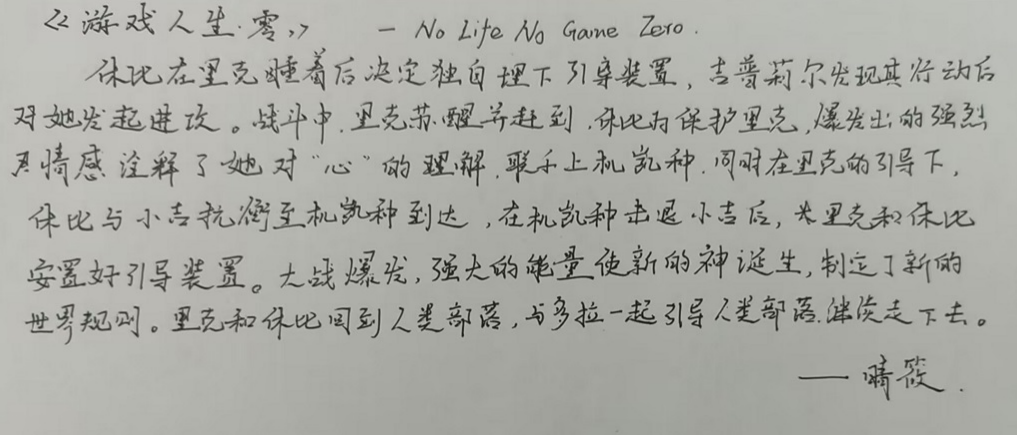 《游戏人生·零》 — No Life No Game Zero.
休比在里克睡着后决定独自埋下引导装置,吉普莉尔发现其行动后
对她发起进攻。战斗中,里克苏醒并赶到,休比为保护里克,爆发出的强烈
情感诠释了她对“心”的理解,联系上机凯种,同时在里克的引导下,
休比与小吉抗衡至机凯种到达,在机凯种击退小吉后,里克和休比
安置好引导装置。大战爆发,强大的能量使新的神诞生,制定了新的
世界规则。里克和休比回到人类部落,与多拉一起引导人类部落继续走下去。
——晴筱.